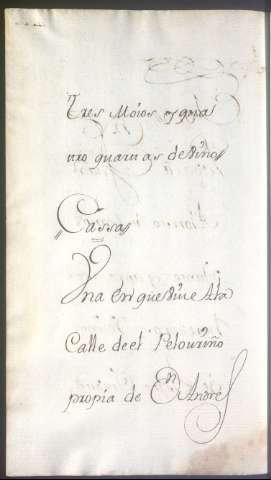 Tres Moios y
tro quartas de viño
Cassas
Vna en que viue A la
Calle de el Pelouriño
propia de Dn Andres